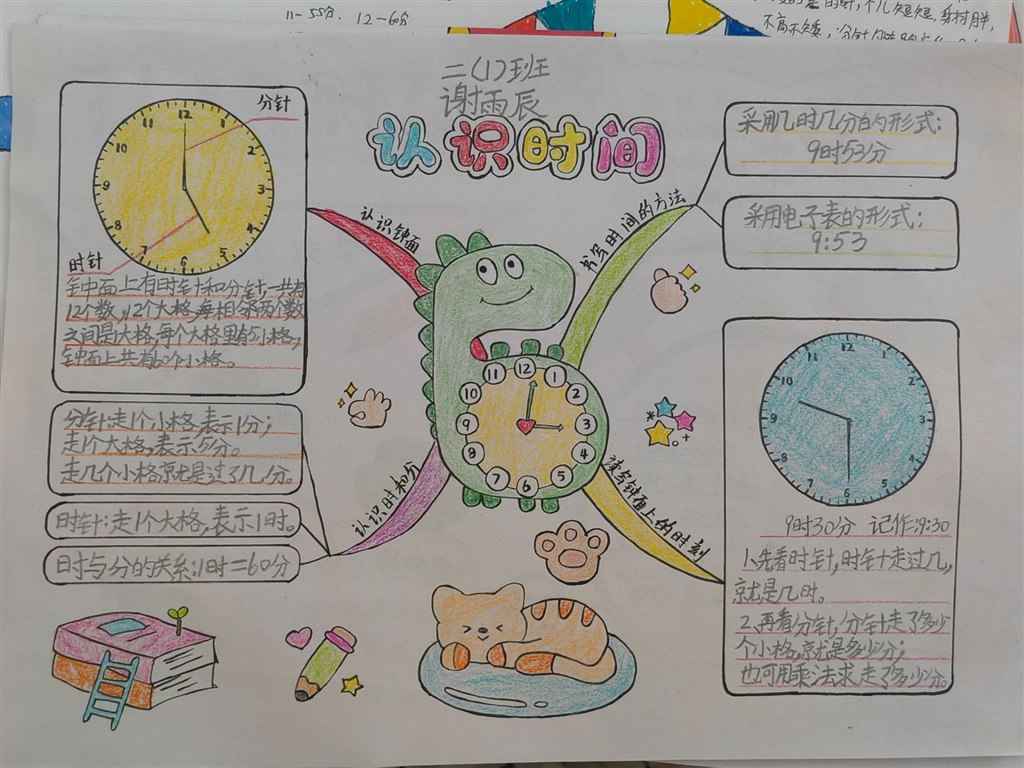 11-55分、12-60分
二(1)班
谢雨辰
认识时间
分针
12
1
2
3
4
5
6
7
8
9
10
11
时针
钟面上有时针和分针,一共有
12个数,12个大格,每相邻两个数
之间是大格,每个大格里有5小格,
钟面上共有60个小格。
认识钟面
分针:走1个小格,表示1分;
走1个大格,表示5分。
走几个小格就是过了几分。
时针:走1个大格,表示1时。
日时与分的关系:1时=60分
认识时和分
12
1
2
3
4
5
6
7
8
9
10
11
书写时间的方法
采用几时几分的形式:
9时53分
采用电子表的形式:
9:53
读写钟面上的时刻
12
1
2
3
4
5
6
7
8
9
10
11
9时30分 记作:9:30
1、先看时针,时针走过几,
就是几时。
2、再看分针,分针走了多少
个小格,就是多少分;
也可用乘法求走了多少分。